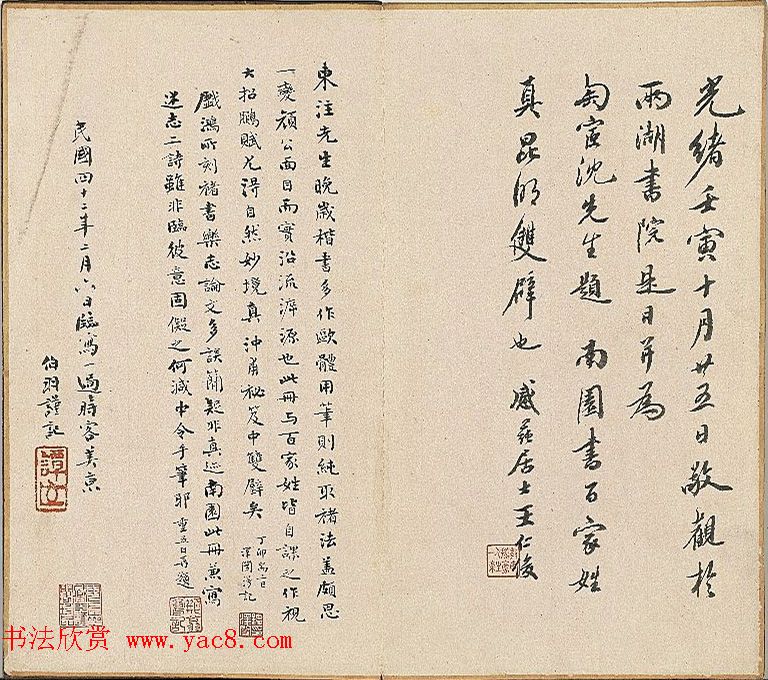 光緒壬寅十月廿五日敬觀於
兩湖書院是日并為
匋宦沈先生題 南園書百家姓
真昆明雙璧也 感蒓居士王仁俊
東注先生晚歲楷書多作歐體用筆則純取褚法蓋頗思
一變顏公面目而實沿流溯源也此冊与百家姓皆自課之作視
大招鵩賦尤得自然妙境真沖甫祕笈中雙璧矣
丁卯
澤闓謹記
戲鴻所刻褚書樂志論文多誤蘭疑非真迹南園此冊兼寫
述志二詩雖非臨彼意固儗之何減中令手筆耶 重五日再題
民國四十二年二月六日臨寫一過時客美京
伯羽謹記
書法欣赏 www.yac8.com